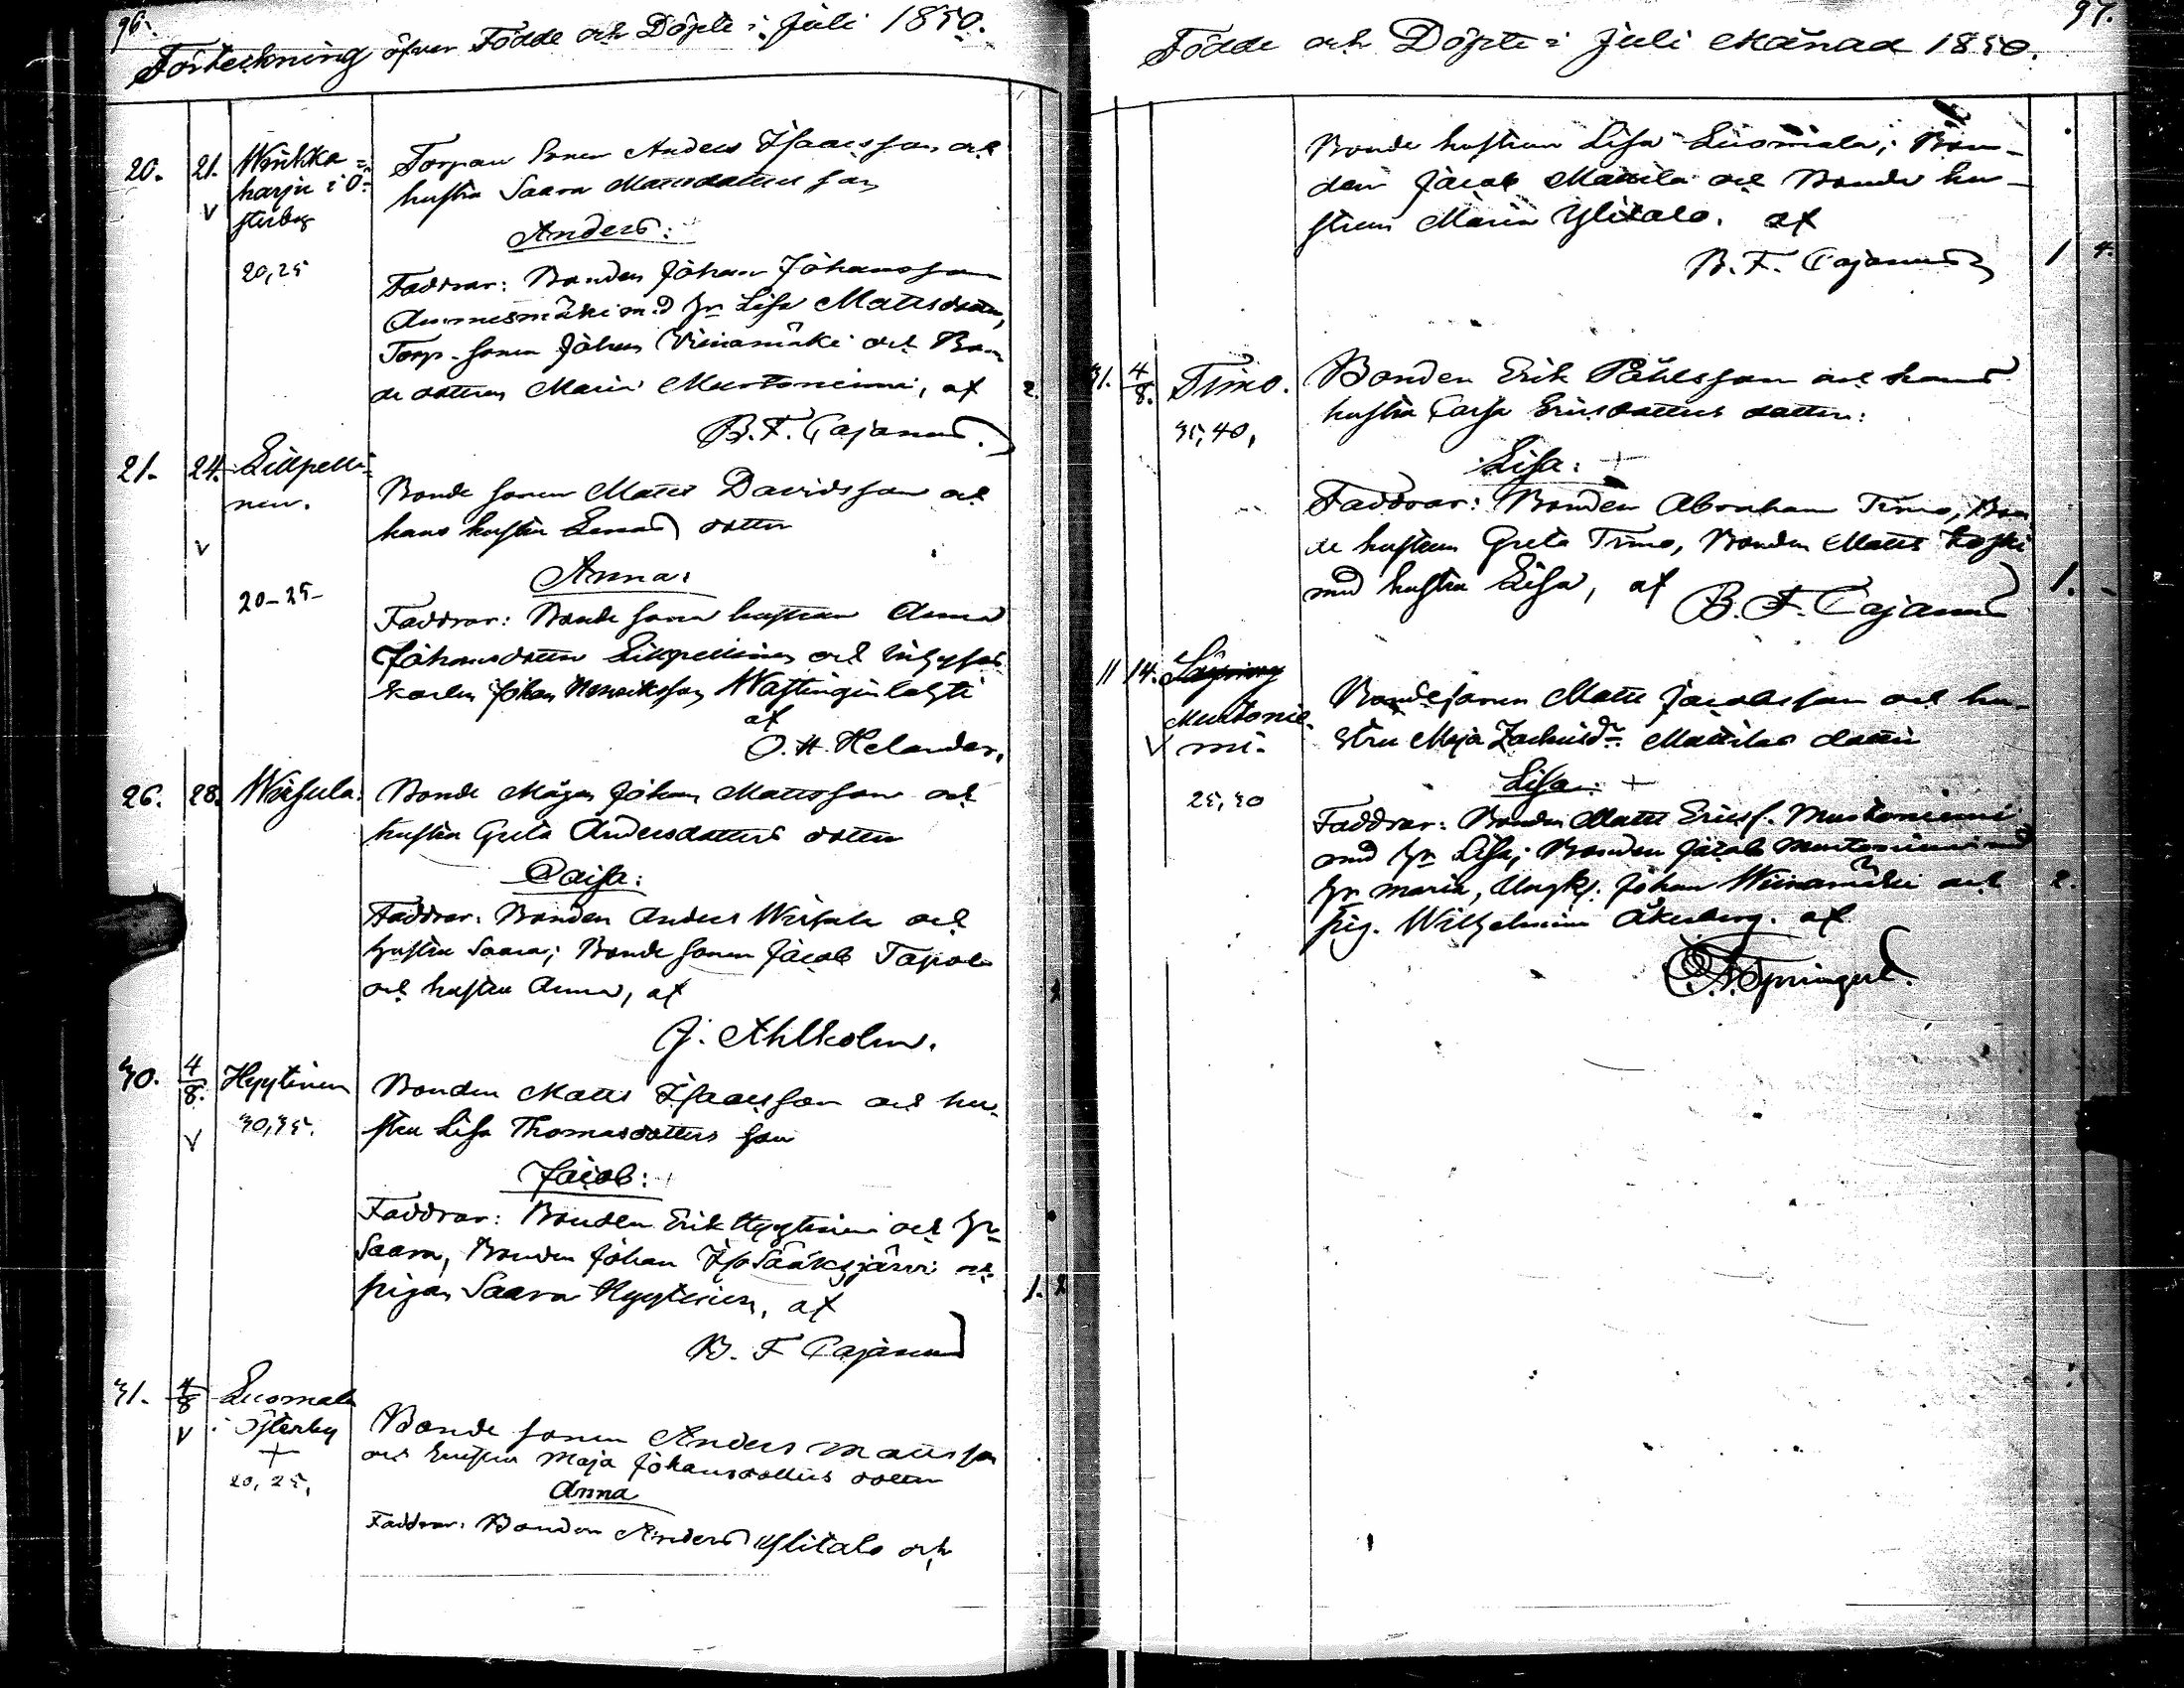 96.
Förteckning öfver Födde och Döpte i Juli 1850.
20. 21. Wirikka=
harju i Ö-
sterby
20,25
Torpare Sonen Anders Isaacsson och
hustru Saara Mattsdotters son
Anders:
Faddrar: Bonden Johan Johansson
Ammesmäki med hu Lisa Mattsdotter,
Torp. sonen Johan Viinamäki och Bon-
de dottren Maria Murtoniemi, af 2.
B. F. Cajanus.
21. 24. Lillpelli-
nen.
V
20-25-
Bonde sonen Matts Davidsson och
hans hustru Lenas dotter
Anna:
Faddrar: Bonde sonen hustrun Anna
Johansdotter Lillpellinen och
karlen Johan Henriksson Wästinginlahti
af
O. H. Helander.
26. 28. Wirsula.
Bonde Mågen Johan Mattsson och
hustru Greta Andersdotters dotter
Caisa:
Faddrar: Bonden Anders Wirsula och
hustru Saara; Bonde sonen Jacob Tapola
och hustru Anna, af
J. Ahlholm.
30. 4/8. Hyytinen
V 30,35.
Bonden Matts Isaacsson och hu-
stru Lisa Thomasdotters son
Jacob:
Faddrar: Bonden Erik Hyytinen och hu
Saara, Bonden Johan Iso Sääksjärvi och
pigan Saara Hyytinen, af 1.
B. F Cajanus
31. 4/8 Luomala
V i Österby
+
20, 25,
Bonde sonen Anders Mattsson
och hustru Maja Johansdotters dotter
Anna
Faddrar: Bonden Anders Ylitalo och
97.
Födde och Döpte i Juli Månad 1850.
Bonde hustrun Lisa Luomala; Bon-
den Jacob Mattila och Bonde hu-
strun Maria Ylitalo. af
B. F. Cajanus 1 4.
31. 4/8. Timo.
35, 40,
Bonden Erik Påhlsson och hans
hustru Caisa Ericsdotters dotter:
Lisa: +
Faddrar: Bonden Abraham Timo, Bon-
de hustrun Greta Timo, Bonden Matts Koski
med hustru Lisa, af 1.
B. F. Cajanus
11 14.
Murtonie-
V mi.
25,30
Bondesonen Matts Jacobsson och hu-
stru Maja Zachrisdr Mattilas dotter
Lisa. +
Faddrar: Bonden Matts Ericss. Murtoniemi
med hu Lisa; Bonden Jacob Murtoniemi med
hu Maria, Ungk. Johan Wiinamäki och 2.
pig. Wilhelmina Åkerberg. af
Springert.